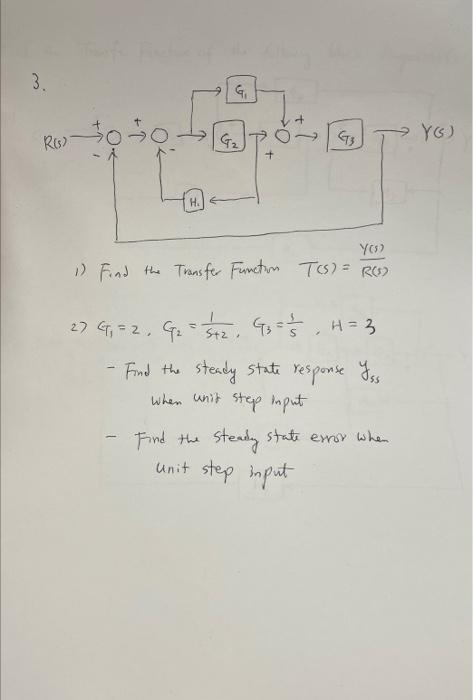 3.
G₁
+ + +
R(s) G₂ G₃ Y(s)
- - +
H₁
1) Find the Transfer Function T(s) = Y(s)/R(s)
2) G₁ = 2, G₂ = 1/(s+2), G₃ = 1/s, H = 3
- Find the steady state response yss
when unit step input
- Find the steady state error when
unit step input